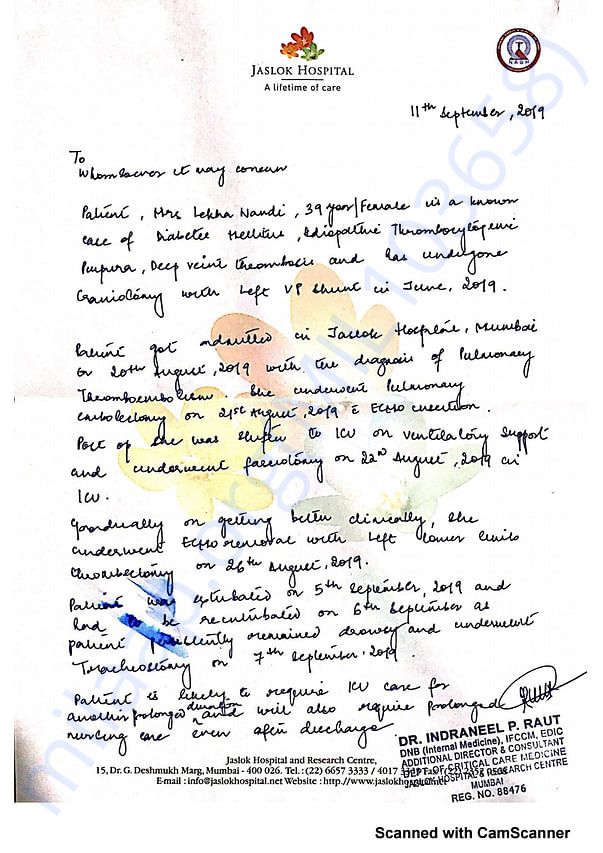 JASLOK HOSPITAL
A lifetime of care
NABH
11th September, 2019
To
Whomsoever it may concern
Patient, Mrs Lekha Nandi, 39 year/Female is a known
case of Diabetes Mellitus, Idiopathic Thrombocytopenic
Purpura, Deep vein thrombosis and has undergone
Craniotomy with Left VP shunt in June, 2019.
Patient got admitted in Jaslok Hospital, Mumbai
on 20th August, 2019 with the diagnosis of Pulmonary
Thromboembolism. She underwent Pulmonary
embolectomy on 21st August, 2019 c ECMO insertion.
Post op she was shifted to ICU on ventilatory support
and underwent fasciotomy on 22nd August, 2019 in
ICU.
Gradually on getting better clinically, she
underwent ECMO removal with Left lower limb
thrombectomy on 26th August, 2019.
Patient was extubated on 5th September, 2019 and
had to be reintubated on 6th September as
patient persistently remained drowsy and underwent
Tracheostomy on 7th September, 2019.
Patient is likely to require ICU care for
another prolonged duration and will also require prolonged
nursing care even after discharge
DR. INDRANEEL P. RAUT
DNB (Internal Medicine), IFCCM, EDIC
ADDITIONAL DIRECTOR & CONSULTANT
DEPT. OF CRITICAL CARE MEDICINE
JASLOK HOSPITAL & RESEARCH CENTRE
MUMBAI
REG. NO. 88476
Jaslok Hospital and Research Centre,
15, Dr. G. Deshmukh Marg, Mumbai - 400 026. Tel. : (22) 6657 3333 / 4017 3333 Fax:
E-mail : info@jaslokhospital.net Website : http://www.jaslokhospital.net
Scanned with CamScanner